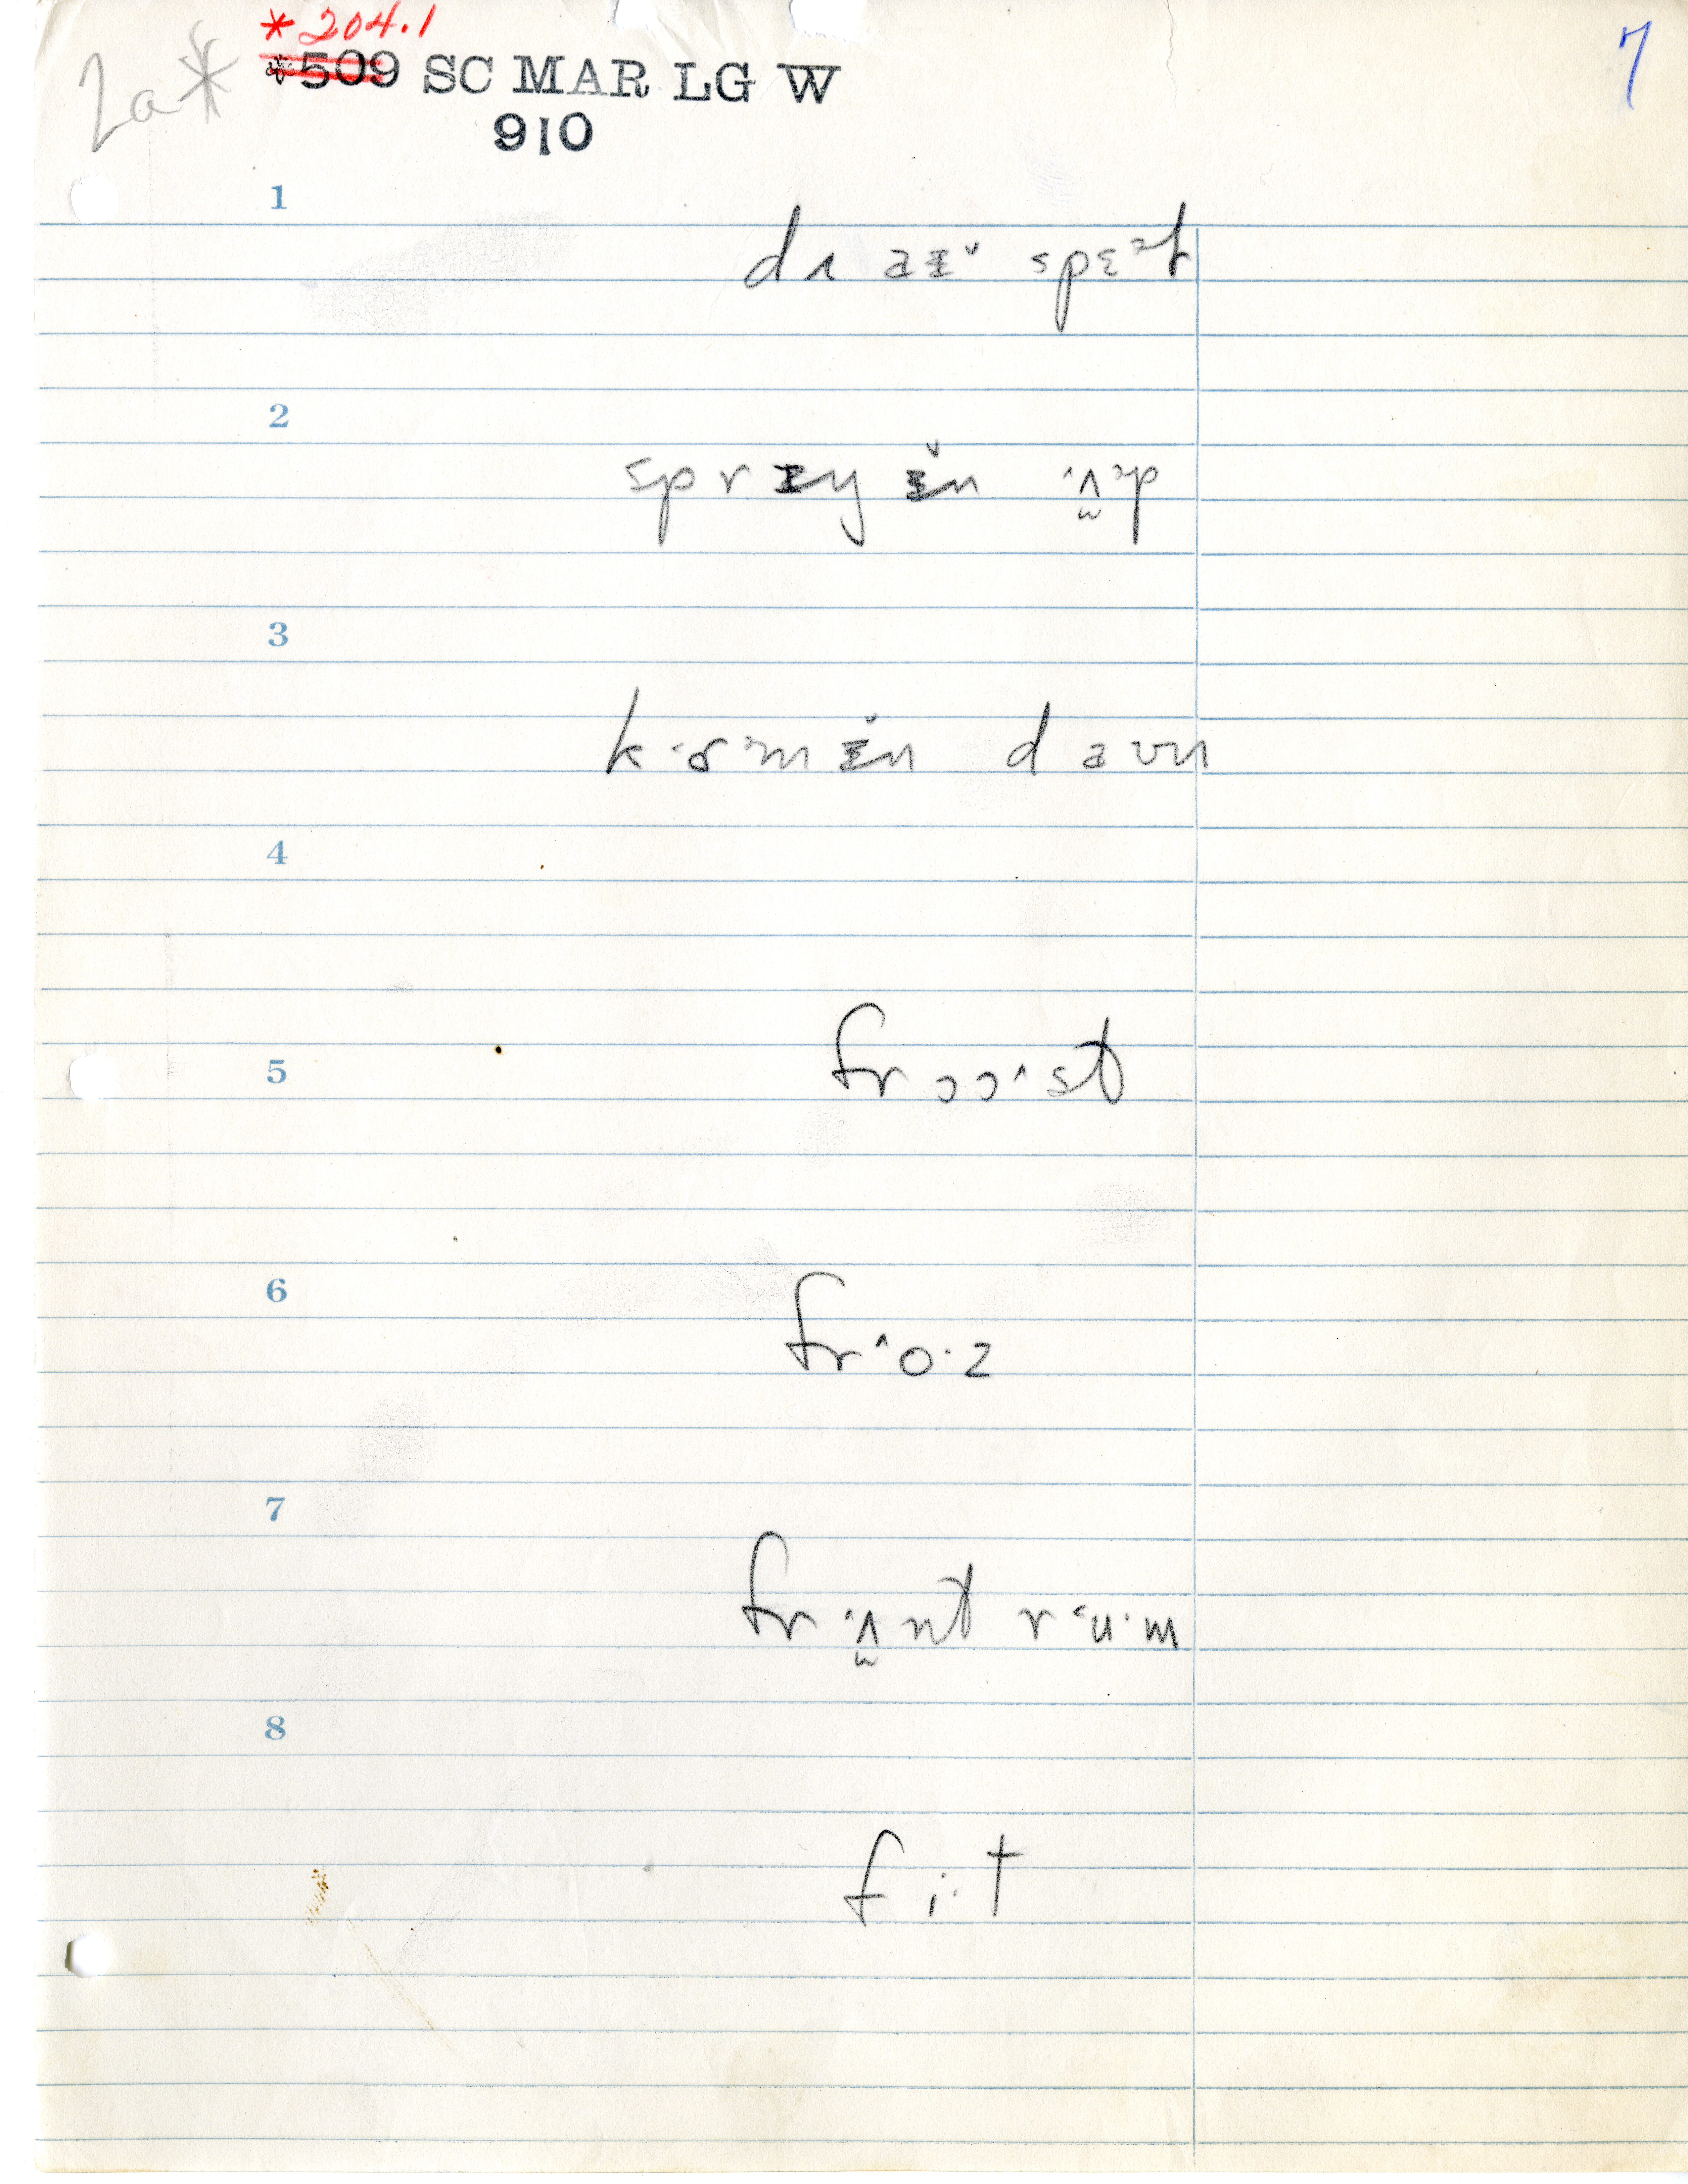 *204.1
2a*
7
*509 SC MAR LG W
910
1
dɹ aɪ̆ spɛᵊt
2
sprɪŋ ɪ̆n ʌ̬p
3
k ɚm ɪ̆n d aʊn
4
5
fr ɔɔ^st
6
fr^o·z
7
fr ʌ̬nt r ˂u·m
8
f i·t